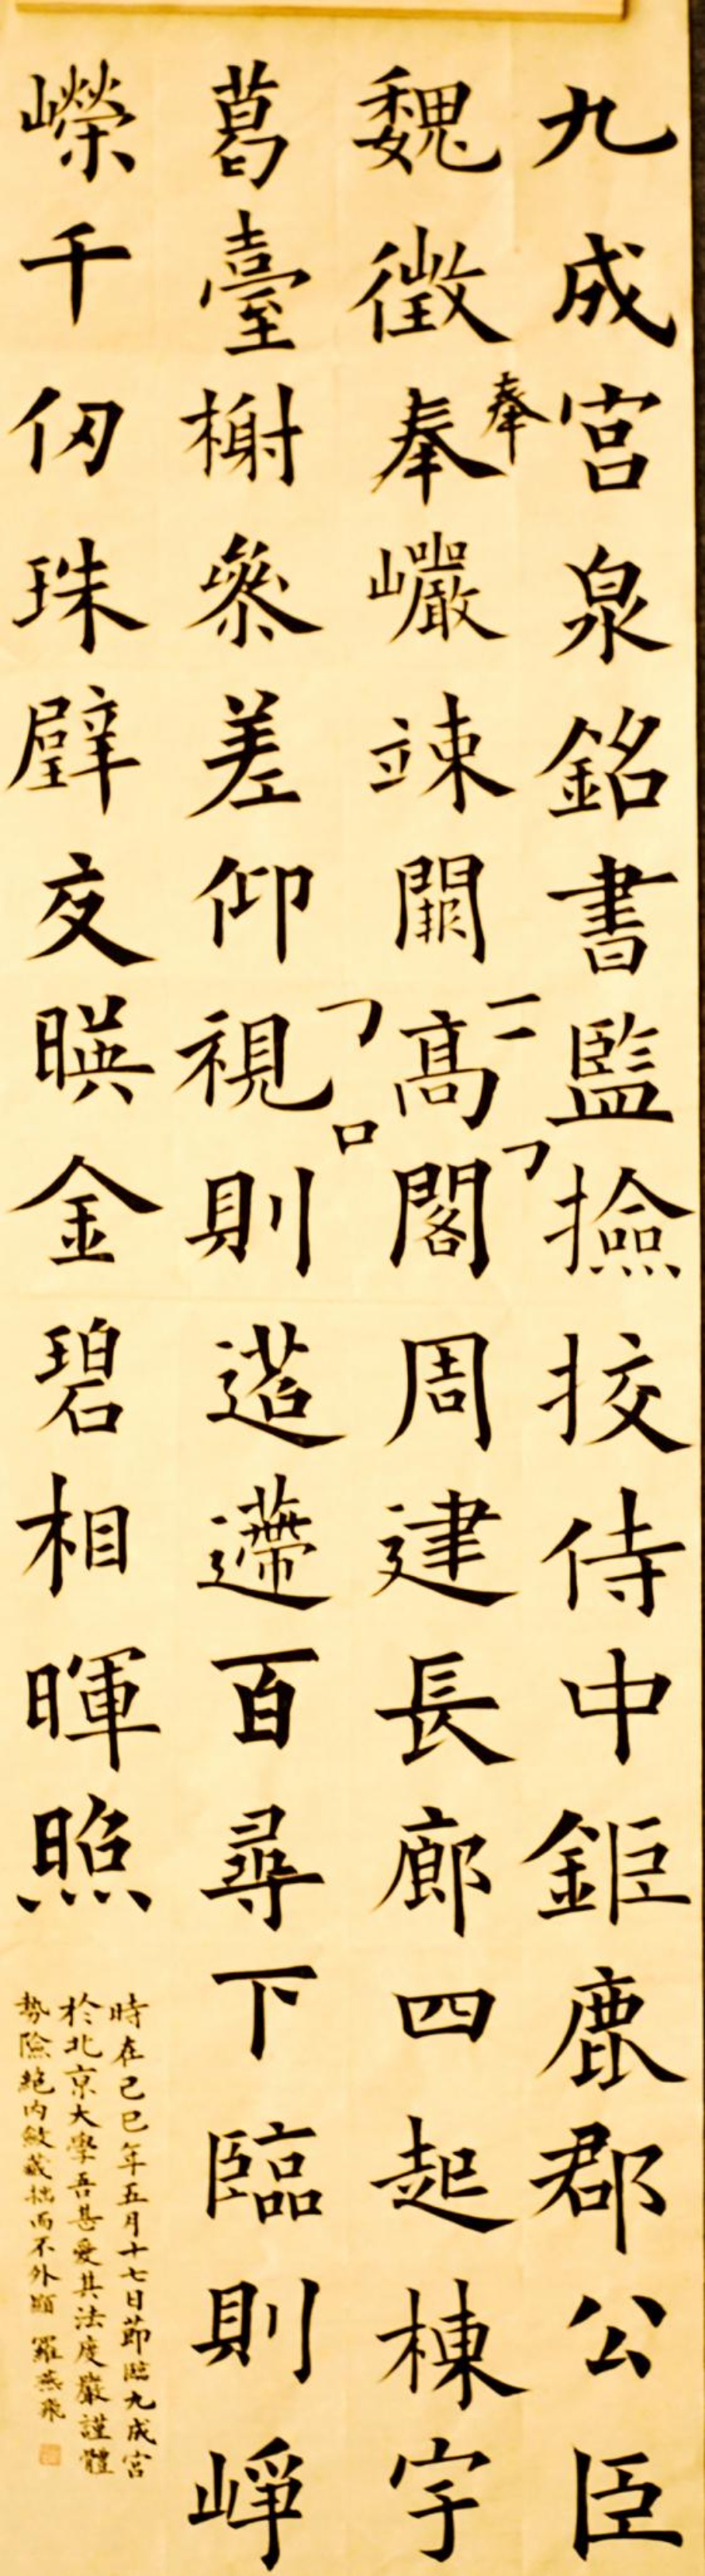 九成宮泉銘書監撿挍侍中鉅鹿郡公臣
奉
魏徵奉巗竦闕髙閣周建長廊四起棟宇
葛臺榭叅差仰視則迢遰百尋下臨則崢
嶸千仞珠璧交暎金碧相暉照
時在己巳年五月十七日節臨九成宮
於北京大學吾甚愛其法度嚴謹體
勢險絶内斂藏拙而不外顯 羅燕飛